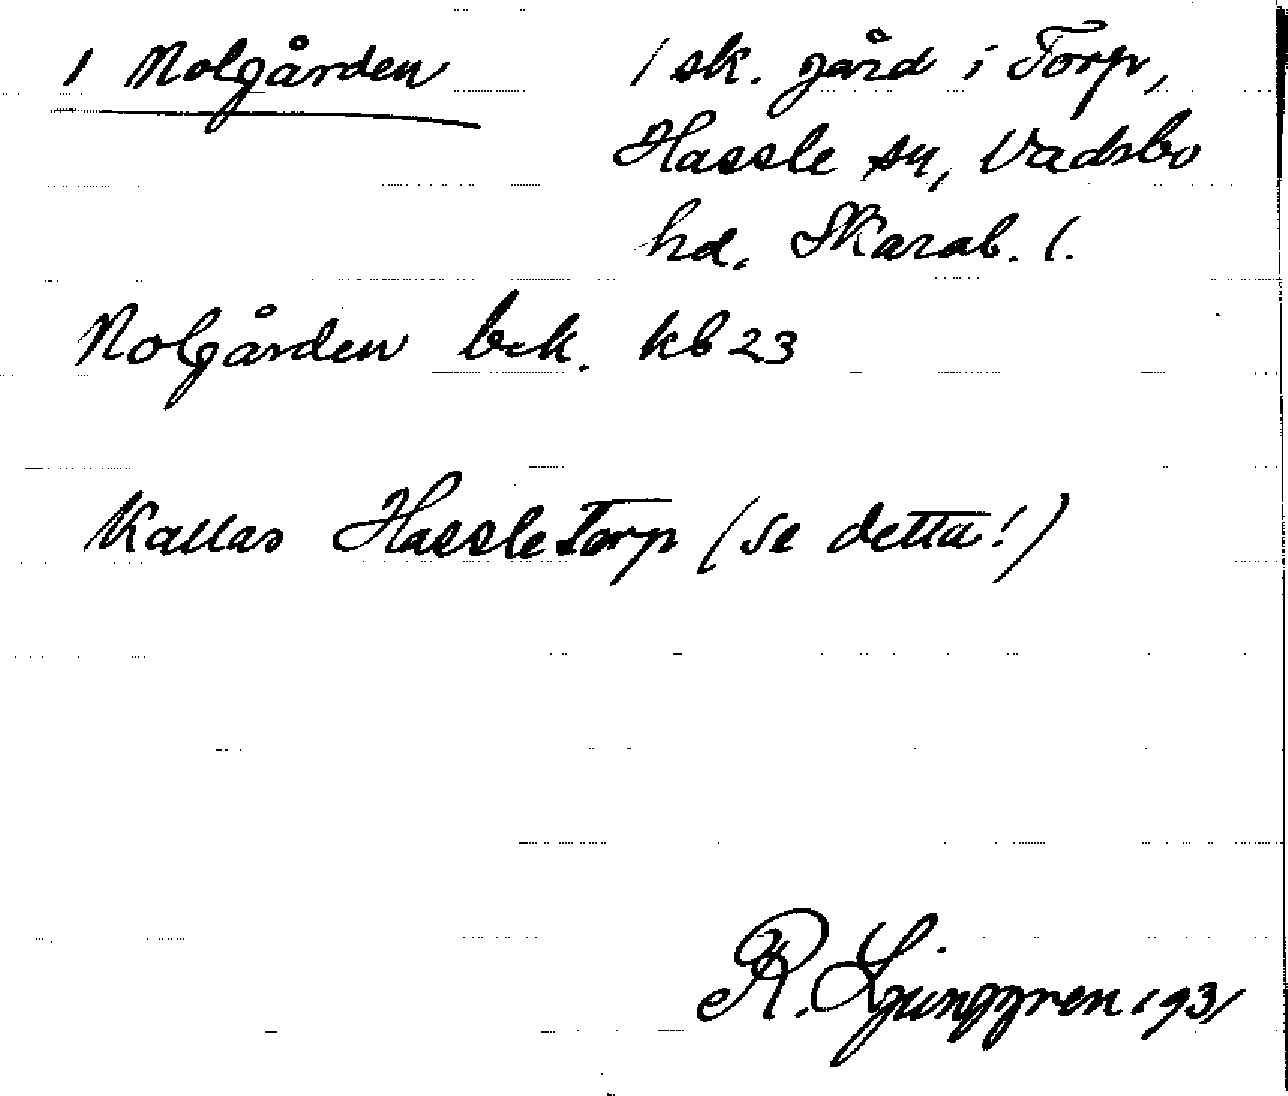 1 Nolgården
1 sk. gård i Torp,
Hassle sn, Vadsbo
hd. Skarab. l.
Nolgården bek. kb 23
Kallas Hassletorp (se detta!)
R. Ljunggren 1931